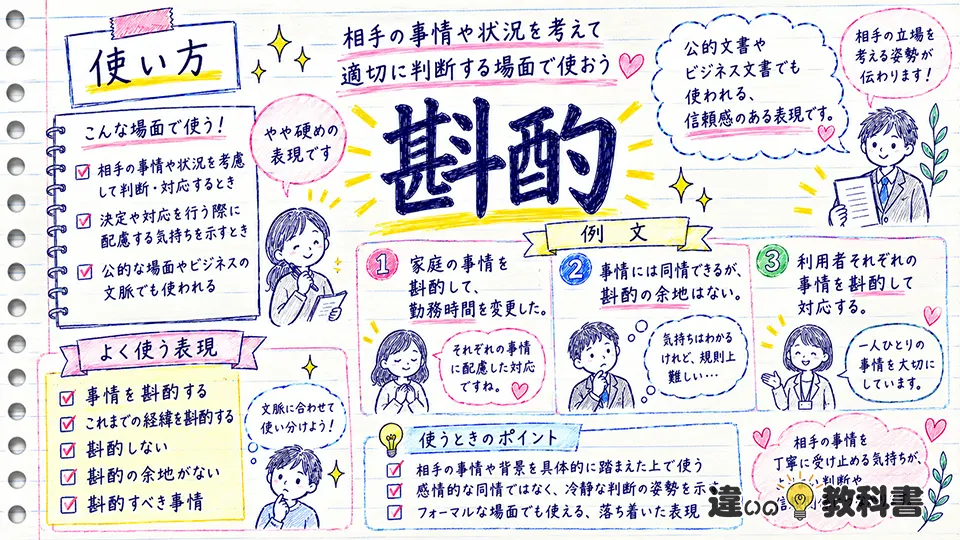 使い方
相手の事情や状況を考えて
適切に判断する場面で使おう
公的文書や
ビジネス文書でも
使われる、
信頼感のある表現です。
相手の立場を
考える姿勢が
伝わります！
こんな場面で使う！
相手の事情や状況を考慮
して判断・対応するとき
決定や対応を行う際に
配慮する気持ちを示すとき
公的な場面やビジネスの
文脈でも使われる
やや硬めの
表現です
斟酌
例文
1
家庭の事情を
斟酌して、
勤務時間を変更した。
それぞれの事情
に配慮した対応
ですね。
2
事情には同情できるが、
斟酌の余地はない。
気持ちはわかる
けれど、規則上
難しい…
3
利用者それぞれの
事情を斟酌して
対応する。
一人ひとりの
事情を大切に
しています。
よく使う表現
事情を斟酌する
これまでの経緯を斟酌する
斟酌しない
斟酌の余地がない
斟酌すべき事情
文脈に合わせて
使い分けよう！
使うときのポイント
相手の事情や背景を具体的に踏まえた上で使う
感情的な同情ではなく、冷静な判断の姿勢を示
フォーマルな場面でも使える、落ち着いた表現
相手の事情を
丁寧に受け止める気持ちが、
い判断や
違いの教科書